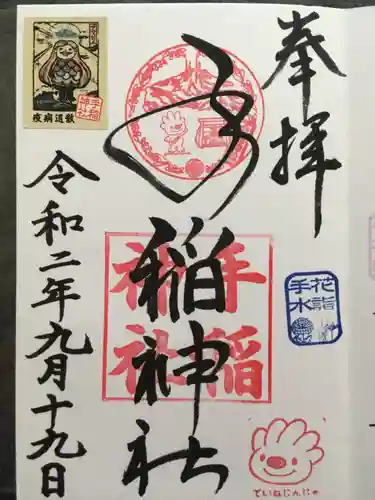 奉拝
手稲神社
令和二年九月十九日
手稲
神社
花詣
手水
ていねじんじゃ
疫病退散
手稲
神社